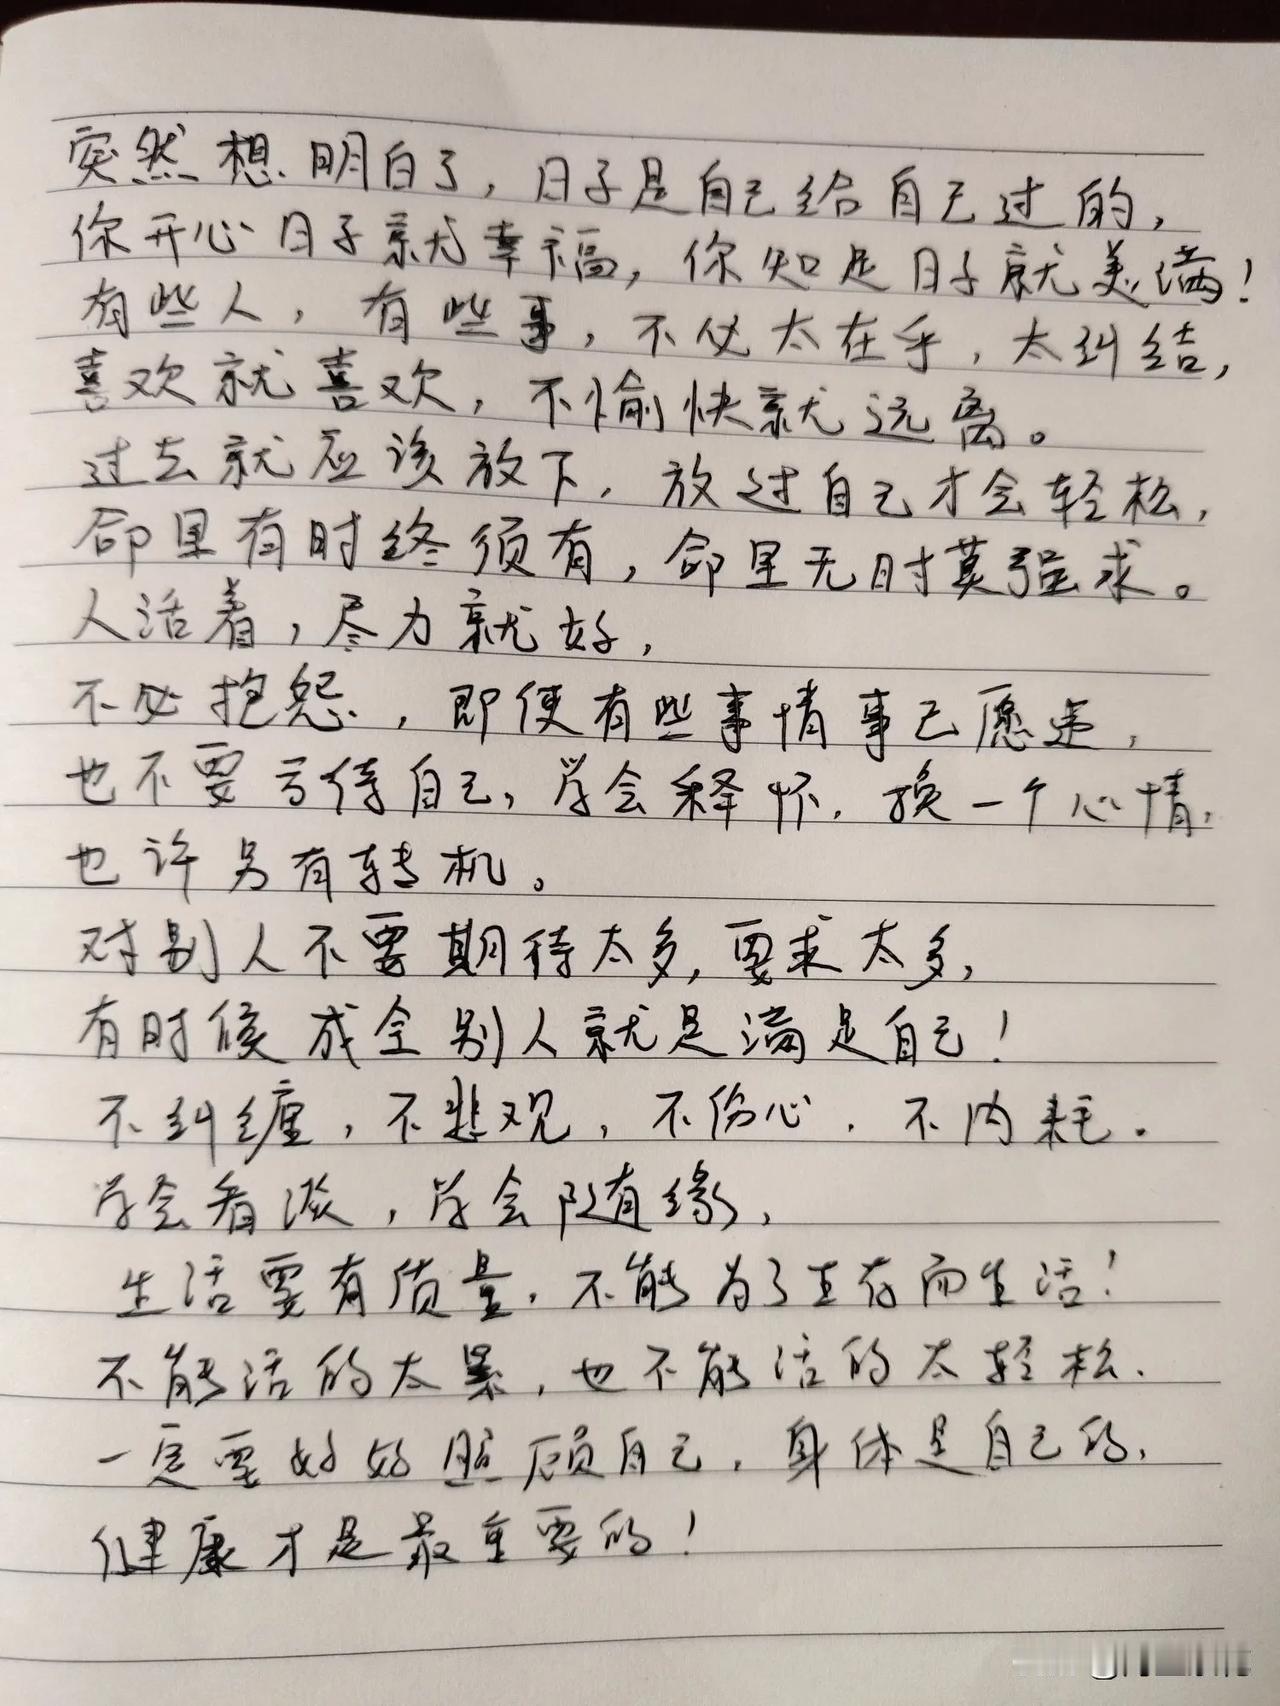 突然想明白了，日子是自己给自己过的，
你开心日子就幸福，你知足日子就美满！
有些人，有些事，不必太在乎，太纠结，
喜欢就喜欢，不愉快就远离。
过去就应该放下，放过自己才会轻松，
命里有时终须有，命里无时莫强求。
人活着，尽力就好，
不必抱怨，即使有些事情事已愿违，
也不要亏待自己，学会释怀，换一个心情，
也许另有转机。
对别人不要期待太多，要求太多，
有时候成全别人就是满足自己！
不纠缠，不悲观，不伤心，不内耗。
学会看淡，学会随缘，
生活要有质量，不能为了生存而生活！
不能活的太累，也不能活的太轻松，
一定要好好照顾自己，身体是自己的，
健康才是最重要的！